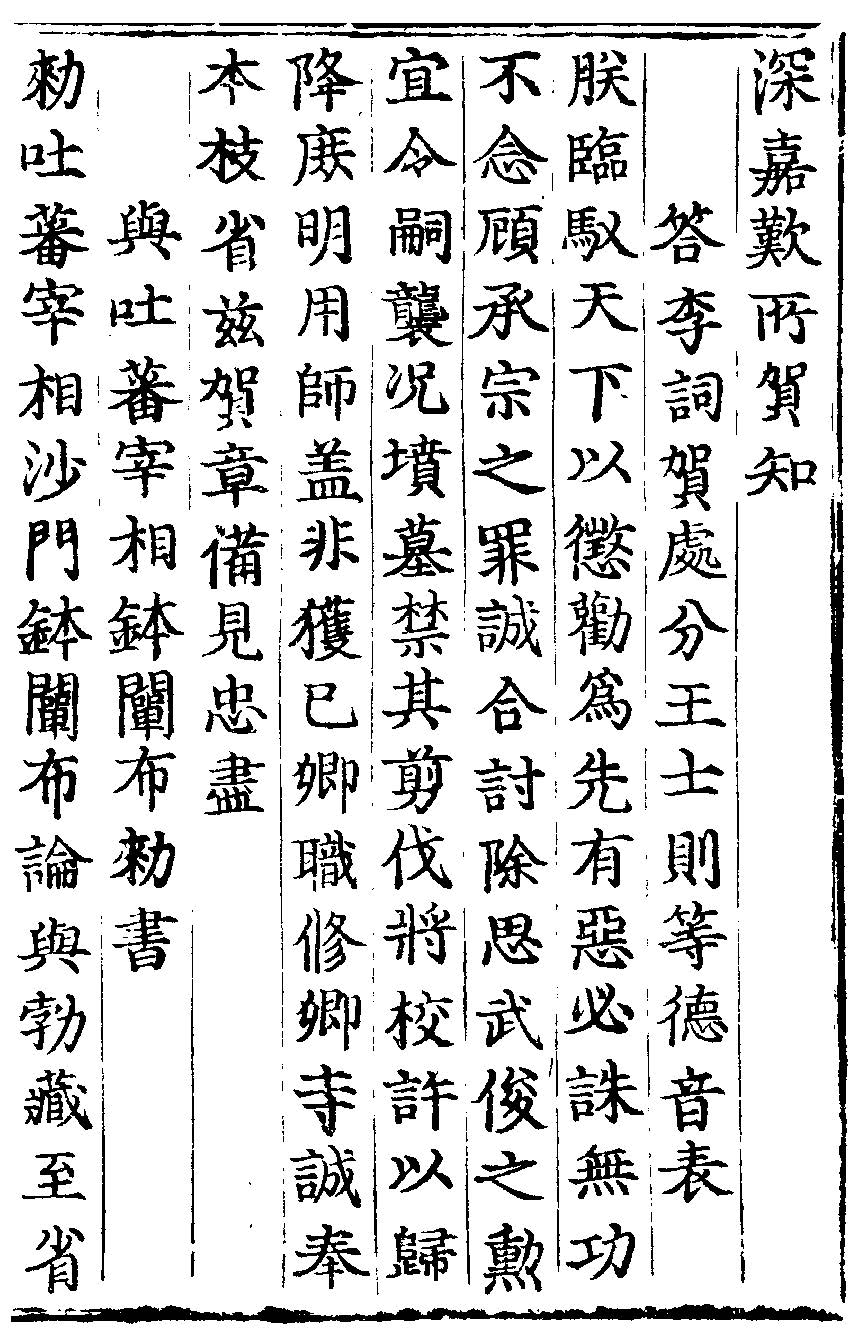 深嘉歎所賀知
答李詞賀處分王士則等德音表
朕臨馭天下以懲勸爲先有惡必誅無功
不念顧承宗之罪誠合討除思武俊之勲
宜令嗣襲况墳墓禁其剪伐將校許以歸
降庶明用師盖非獲已卿職修卿寺誠奉
本枝省兹賀章備見忠盡
與吐蕃宰相鉢闡布勑書
勑吐蕃宰相沙門鉢闡布論與勃藏至省